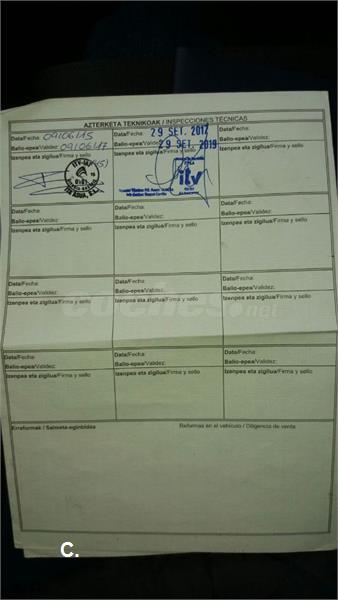 AZTERKETA TEKNIKOAK / INSPECCIONES TÉCNICAS
Data/Fecha: 09/06/15
Balio-epea/Validez: 09/06/17
Izenpea eta zigilua/Firma y sello
Data/Fecha: 29 SET. 2017
Balio-epea/Validez: 29 SET. 2019
Izenpea eta zigilua/Firma y sello
itv
Data/Fecha:
Balio-epea/Validez:
Izenpea eta zigilua/Firma y sello
Data/Fecha:
Balio-epea/Validez:
Izenpea eta zigilua/Firma y sello
Data/Fecha:
Balio-epea/Validez:
Izenpea eta zigilua/Firma y sello
Data/Fecha:
Balio-epea/Validez:
Izenpea eta zigilua/Firma y sello
Data/Fecha:
Balio-epea/Validez:
Izenpea eta zigilua/Firma y sello
Data/Fecha:
Balio-epea/Validez:
Izenpea eta zigilua/Firma y sello
Data/Fecha:
Balio-epea/Validez:
Izenpea eta zigilua/Firma y sello
coches.net
Data/Fecha:
Balio-epea/Validez:
Izenpea eta zigilua/Firma y sello
Data/Fecha:
Balio-epea/Validez:
Izenpea eta zigilua/Firma y sello
Data/Fecha:
Balio-epea/Validez:
Izenpea eta zigilua/Firma y sello
Erreformak / Salmeta-eginbidea
Reformas en el vehículo / Diligencia de venta
C.